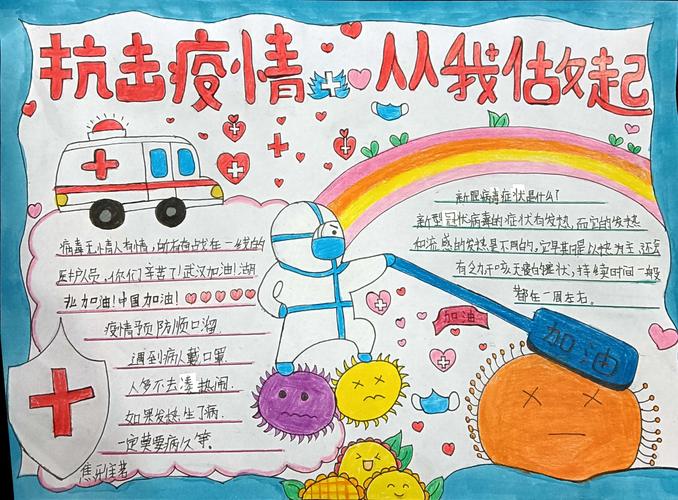 抗击疫情 从从我做起
病毒无情人有情,所有奋战在一线的
医护人员,你们辛苦了!武汉加油!湖
北加油!中国加油!
疫情预防顺口溜
遇到病人戴口罩.
人多不去凑热闹.
如果发烧生了病.
一定莫要病久等.
新冠病毒症状是什么?
新型冠状病毒的症状有发热,而它的发热
和流感的发热是不同的,它早期是以低热为主,还会
有乏力干咳
状,持续时间一般
都在一周左右。
加油
加油